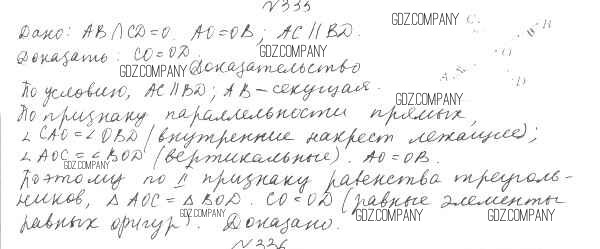 №335
Дано: AB∩CD=O. AO=OB; AC∥BD. GDZ.COMPANY C B
Доказать: CO=OD. GDZ.COMPANY O
GDZ.COMPANY Доказательство A D
По условию, AC∥BD; AB – секущая.
По признаку параллельности прямых, GDZ.COMPANY
∠CAO=∠OBD (внутренние накрест лежащие);
∠AOC=∠BOD (вертикальные). AO=OB.
GDZ.COMPANY
Поэтому по II признаку равенства треуголь-
ников, △AOC=△BOD. CO=OD (равные элементы
равных фигур). GDZ.COMPANY Доказано. GDZ.COMPANY GDZ.COMPANY
№336